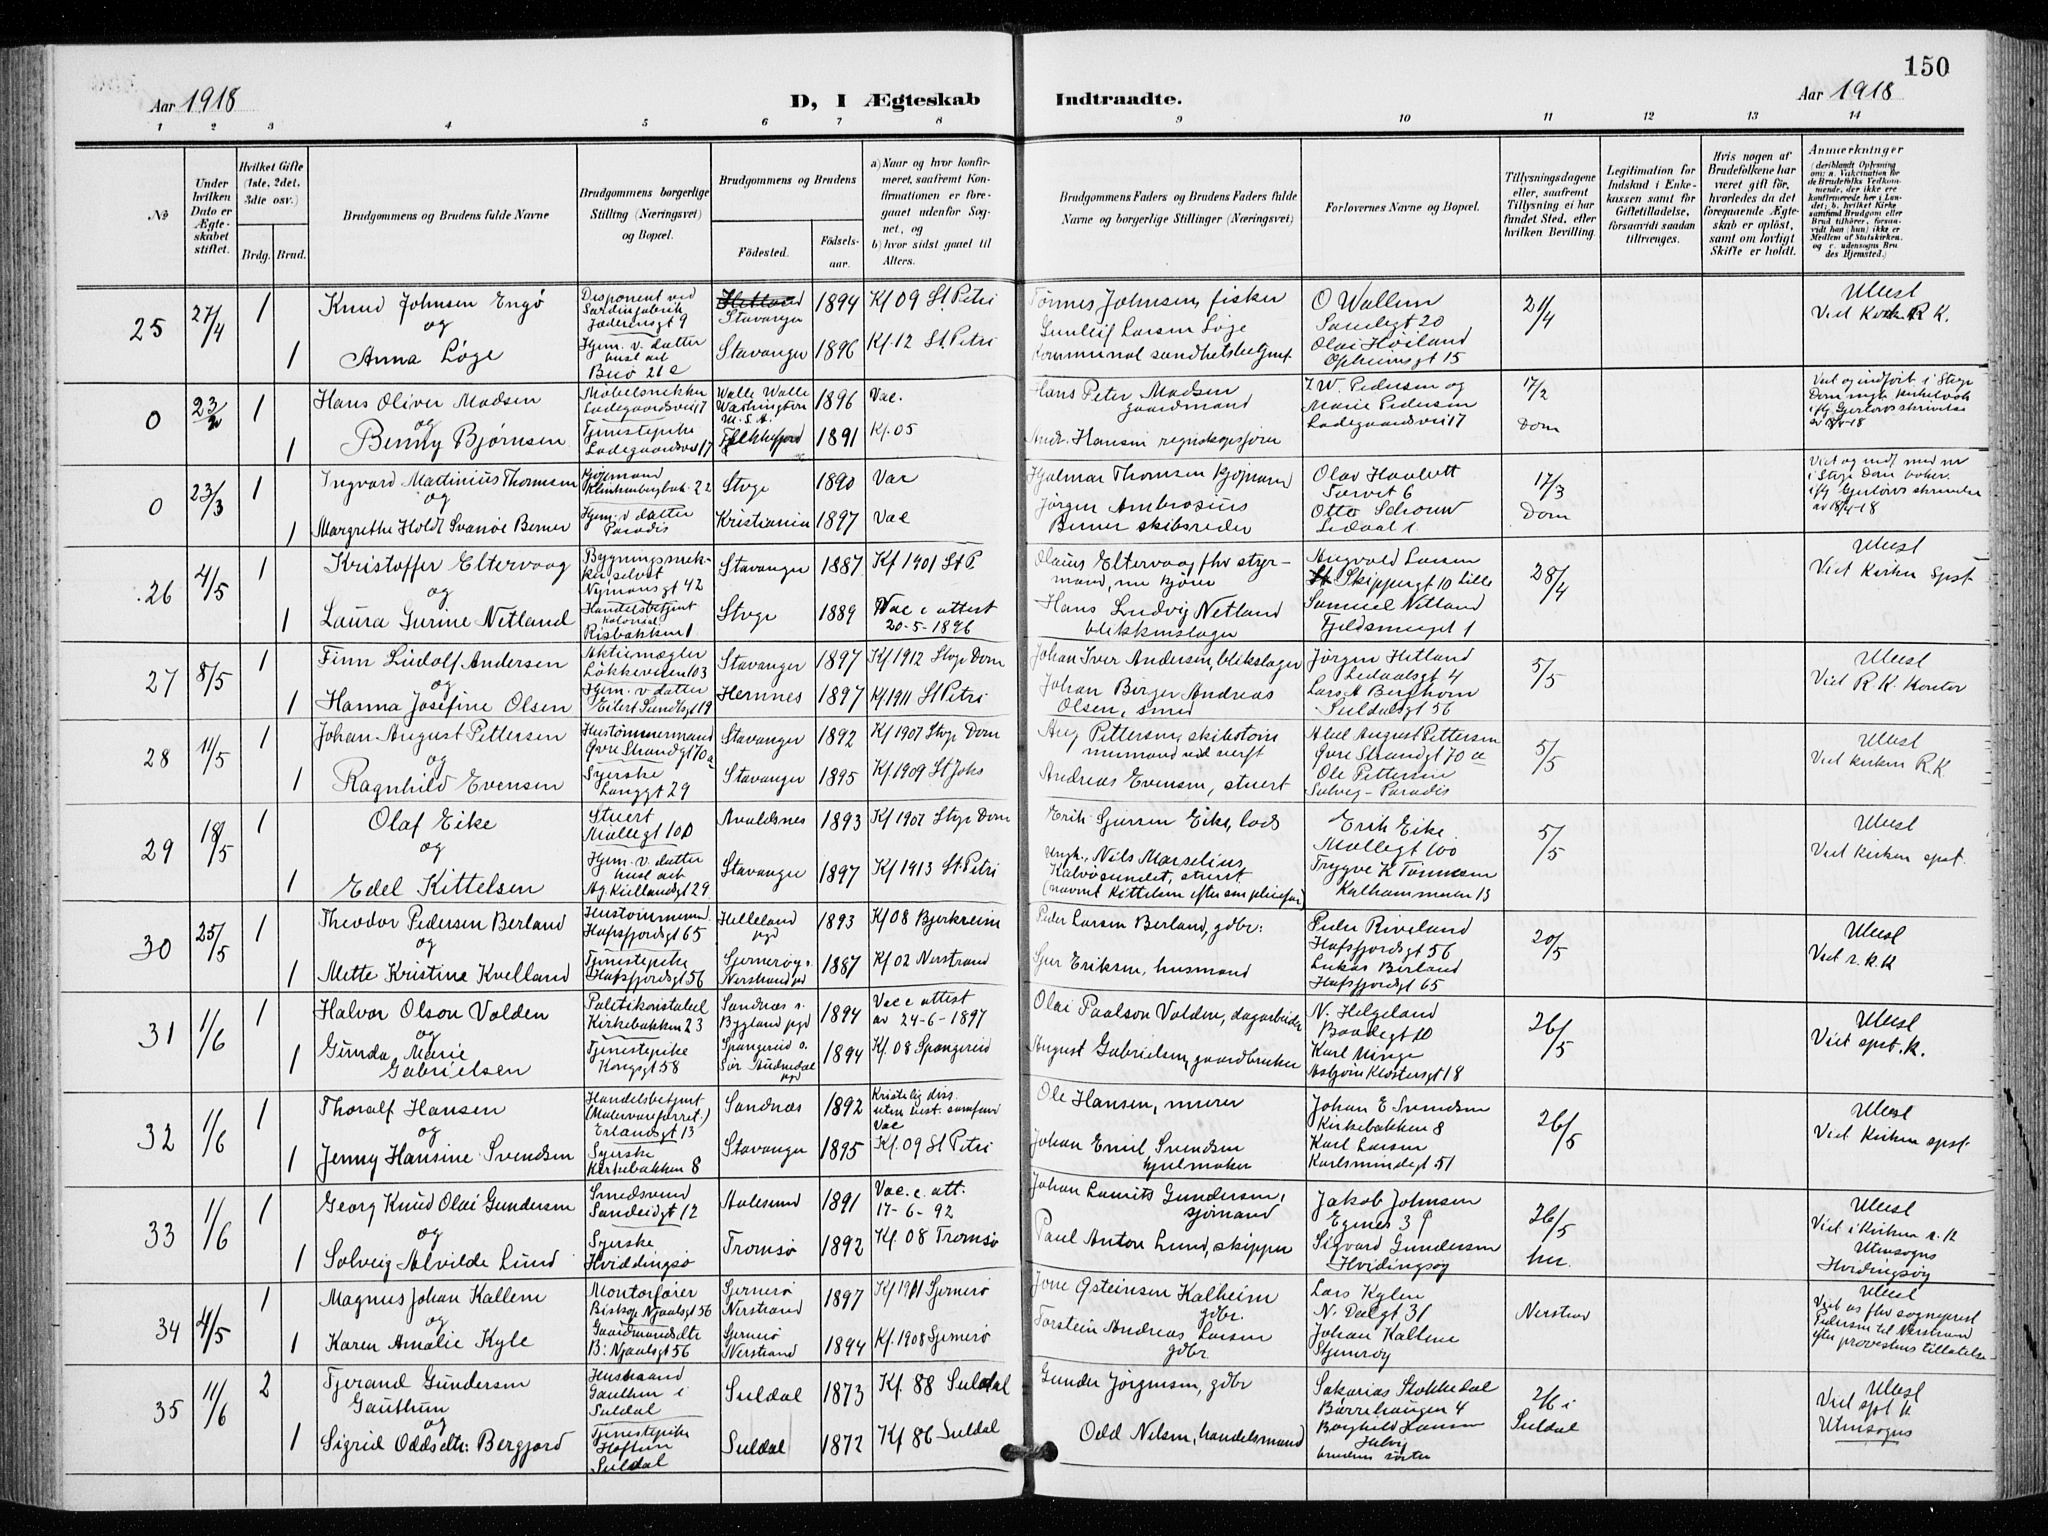 150
Aar 1918
D, I Ægteskab Indtraadte.
Aar 1918
1 2 3 4 5 6 7 8 9 10 11 12 13 14
No
Under hvilken Dato er Ægteskabet stiftet.
Hvilket Gifte (1ste, 2det, 3die osv.)
Brdg. Brud.
Brudgommens og Brudens fulde Navne
Brudgommens borgerlige Stilling (Næringsvei) og Bopæl.
Brudgommens og Brudens
Fødested.
Fødselsaar.
a) Naar og hvor konfirmeret, saafremt Konfirmationen er foregaaet udenfor Sognet, og
b) hvor sidst gaaet til Alters.
Brudgommens Faders og Brudens Faders fulde Navne og borgerlige Stillinger (Næringsvei)
Forlovernes Navne og Bopæl.
Tillysningsdagene eller, saafremt Tillysning ei har fundet Sted, efter hvilken Bevilling.
Legitimation for Indskud i Enkekassen samt for Giftetilladelse, forsaavidt saadan tiltrænges.
Hvis nogen af Brudefolkene har været gift før, hvorledes da det foregaaende Ægteskab er opløst, samt om lovligt Skifte er holdt.
Anmerkninger
(deriblandt Oplysning om: a. Vakcination for de Brudefolks Vedkommende, der ikke ere konfirmerede her i Landet; b. hvilket Kirkesamfund Brudgom eller Brud tilhører, forsaavidt han (hun) ikke er Medlem af Statskirken, og c. udensogns Brudes Hjemsted.)
25 27/4 1 Knud Johnsen Engø Disponent ved Sardinfabrik Jæderensgt 9 Stavanger 1894 Kf 09 St. Petri Tønnes Johnsen, fisker O Wallem Sandegt 20 21/4 Ulæst
og Vied Kirken R K.
1 Anna Løge Hjem. v. datter husl arb Stavanger 1896 Kf. 12 St. Petri Gunleif Larsen Løge Olai Høiland Opheimsgt 15
0 23/2 1 Hans Oliver Madsen Møbelsnikker Ladegaardsvei 17 Walle Walle Washington U.S.A. 1896 Vac. Hans Peter Madsen gaardmand J.W. Pedersen og Marie Pedersen Ladegaardsvei 17 17/2 Dom
og
1 Benny Bjørnsen Tjenestepike Ladegaardsvei 17 Flekkefjord 1891 Kf. 05 Andr. Hansen
0 23/3 1 Ingvard Martinius Thomsen Kjøpmand 22 Stvgr 1890 Vac Hjalmar Thomsen kjøpmand Olav Haalett Torvet 6 17/3 Dom
og
1 Margrethe Holdt Svanøe Berner Hjem. v datter Paradis Kristiania 1897 Vac Jørgen Ambrosius Berner skibsreder Otto Schouw Ledaal 1.
26 4/5 1 Kristoffer Eltervaag Nymansgt 42 Stavanger 1887 Kf 1901 St P. Olaus Eltervaag fhv styrmand, nu kjører Angvald Larsen Skippergt 10 Lille 28/4 Ulæst
og Vied Kirken spst
1 Laura Gurine Netland Handelsbetjent kolonial Risbakken 1 Stvgr 1889 Vac e attest 20-5-1896 Hans Ludvig Netland blikkenslager Samuel Netland 1
27 8/5 1 Finn Ludolf Andersen Aktiemægler Løkkeveien 103 Stavanger 1897 Kf 1912 Stvgr Dom Johan Iver Andersen, blikslager Jørgen Hetland Ledaalsgt 4 5/5 Ulæst
og Vied R.K. Kontor
1 Hanna Josefine Olsen Hjem. v datter Eilert Sundtsgt 19 Hemnes 1897 Kf 1911 St Petri Johan Birger Andreas Olsen, smed Lars A Berghom Suldalsgt 56
28 11/5 1 Johan August Pettersen Hustømmermand Øvre Strandgt 70a Stavanger 1892 Kf 1907 Stvgr Dom Aug Pettersen, skibstømmermand ved verft Abel August Pettersen Øvre Strandgt 70 a 5/5 Ulæst
og Vied kirken R.K.
1 Ragnhild Evensen Syerske Langgt 29 Stavanger 1895 Kf 1909 St Johs Andreas Evensen, stuert Ole Pettersen Solveig - Paradis
29 18/5 1 Olaf Eike Stuert Møllegt 100 Avaldsnes 1893 Kf 1907 Stvgr Dom Erik Eike, lods Erik Eike Møllegt 100 5/5 Ulæst
og Vied kirken spst.
1 Edel Kittelsen Hjem. v. datter husl arb Ag Kiellandsgt 29 Stavanger 1897 Kf 1913 St. Petri Ungk., Nils Marselius Kalvøsundet, stuert (navnet Kittelsen efter ) Trygve K Tønnesen Kalhammeren 13
30 25/5 1 Theodor Pedersen Berland Hustømmerm. Hafsfjordsgt 65 Helleland pgd 1893 Kf 08 Bjerkreim Peder Larsen Berland, gdbr: Peder Riveland Hafsfjordsgt 56 20/5 Ulæst
og Vied r.k.K
1 Mette Kristine Kvelland Tjenestepike Hafsfjordsgt 56 Sjernerøy s. Nerstrand pd 1887 Kf 02 Nerstrand Sjur Eriksen, husmand Lukas Berland Hafsfjordsgt 65
31 1/6 1 Halvor Olson Valden Politikonstabel Kirkebakken 23 Sandnæs s. Bygland pgd 1894 Vac e attest av 24-6-1897 Olai Paalson Valden, dagarbeider N. Helgeland Baadegt 10 26/5 Ulæst
og Viet spst. K.
1 Gunda Marie Gabrielsen Tjenestepike Kongsgt 58 Spangereid s. Sør Audnedal pgd 1894 Kf. 08 Spangereid August Gabrielsen, gaardbruker Karl Unge Asbjørn Klostersgt 18
32 1/6 1 Thoralf Hansen Handelsbetjent (Malervareforret.) Erlandsgt 13 Sandnæs 1892 Kristelig diss. uten best. samfund Vac Ole Hansen, murer Johan E Svendsen Kirkebakken 8 26/5 Ulæst
og Vied Kirken spst
1 Jenny Hansine Svendsen Syerske Kirkebakken 8 Stavanger 1895 Kf. 09 St Petri Johan Emil Svendsen hjulmaker Karl Larsen Karlsmindegt 51
33 1/6 1 Georg Knud Olai Gundersen Smedsvend Sandeidgt 12 Aalesund 1891 Vac. e. att. 17-6-92 Johan Laurits Gundersen, sjømand Jakob Johnsen Egenes 3 26/5 her. Ulæst
og Vied i Kirken r. K
1 Solveig Alvilde Lund Syerske Hviddingsø Tromsø 1892 Kf 08 Tromsø Paul Anton Lund, skipper Sigvard Gundersen Hvidingsøy Utensogns Hvidingsøy
34 4/5 1 Magnus Johan Kallem Montørfører Biskop Njaalsgt 56 Sjernerø Nerstrand 1897 Kf 1911 Sjernerø Jone Østeinsen Kalheim gdbr. Lars Kylen N. Dalgt 31 Nerstrand Ulæst
og Viet av fhv sogneprest Pedersen til Nerstrand efter provstens tillatelse
1 Karen Amalie Kyle Gaardmandsdtr B. Njaalsgt 56 Sjernerø Nerstrand 1894 Kf. 1908 Sjernerø Torstein Andreas Larsen gdbr. Johan Kallem Sjernerøy
35 11/6 2 Tjerand Gundersen Gauthun Husmand Gauthun i Suldal Suldal 1873 Kf. 88 Suldal Gunder Jørgensen, gdbr Sakarias Stokkedal Børrehaugen 4 2/6 i Suldal Ulæst
og Vied spst K
1 Sigrid Oddsdtr: Bergjord Tjenestepike Hoftun Suldal Suldal 1872 Kf 86 Suldal Odd Nilsen, handelsmand Borghild Larsen brudens søster Utensogns